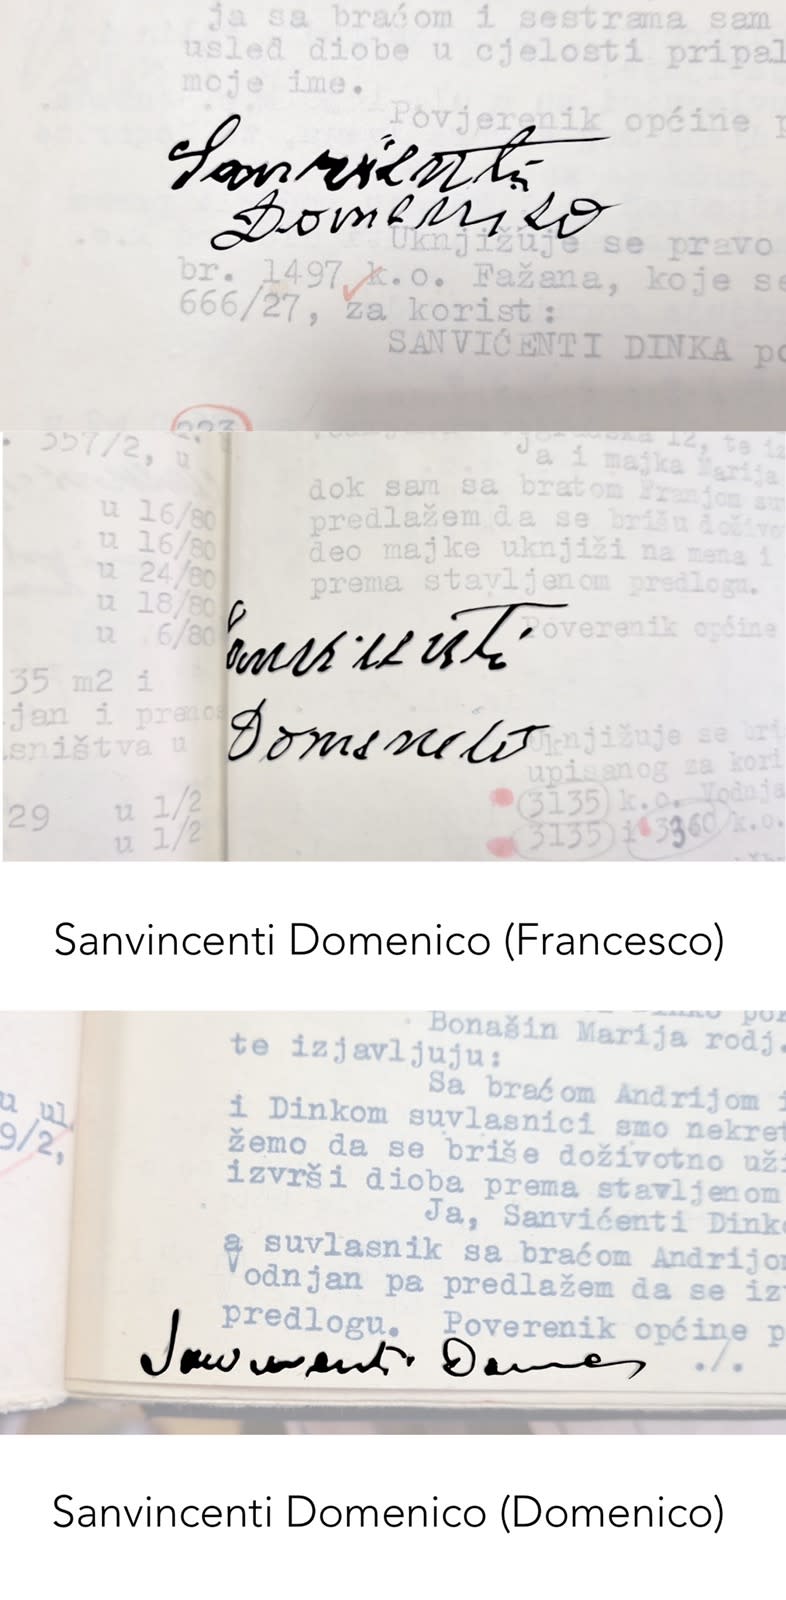 ja sa braćom i sestrama sam
usled diobe u cjelosti pripal
moje ime.
Povjerenik općine p
Sanvicenti
Domenico
Uknjižuje se pravo
br. 1497 k.o. Fažana, koje se
666/27, za korist:
SANVIĆENTI DINKA po
223
557/2, u
u 16/80
u 16/80
u 24/80
u 18/80
u 6/80
35 m2 i
jan i prenos
sništva u
29 u 1/2
u 1/2
12, te iz
Ja i majka Marija
dok sam sa bratom Franjom su
predlažem da se brišu doživo
deo majke uknjiži na mena i
prema stavljenom predlogu.
Poverenik općine
Sanvicenti
Domenico
Uknjižuje se bri
upisanog za kori
(3135) k.o. Vodnja
3135 i 3360 k.o.
Sanvincenti Domenico (Francesco)
u ul.
9/2,
Bonašin Marija rodj.
te izjavljuju:
Sa braćom Andrijom i
i Dinkom suvlasnici smo nekret
žemo da se briše doživotno uži
izvrši dioba prema stavljenom
Ja, Sanvićenti Dinko
a suvlasnik sa braćom Andrijom
Vodnjan pa predlažem da se iz
predlogu. Poverenik općine p
./.
Sanvincenti Domenico (Domenico)